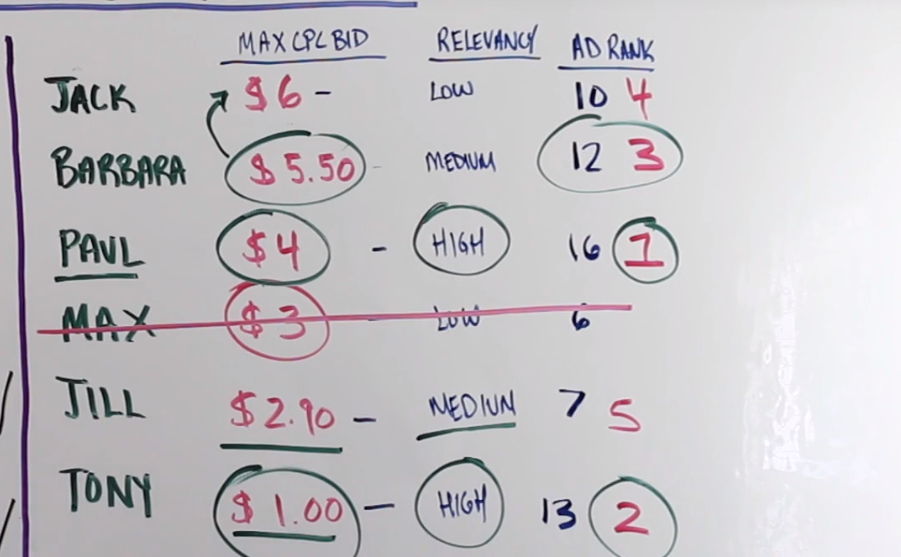 MAX CPC BID RELEVANCY AD RANK
JACK $6 - LOW 10 4
BARBARA $5.50 - MEDIUM 12 3
PAUL $4 - HIGH 16 1
MAX $3 - LOW 6
JILL $2.90 - MEDIUM 7 5
TONY $1.00 - HIGH 13 2